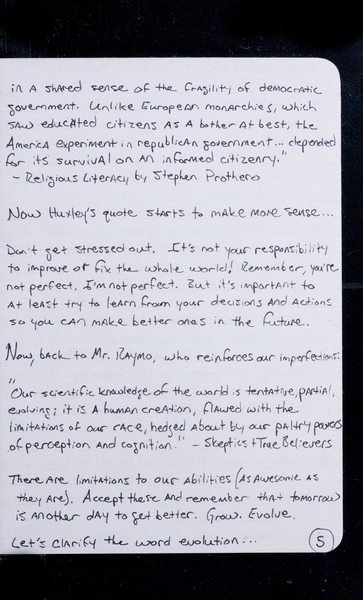 in a shared sense of the fragility of democratic
government. Unlike European monarchies, which
saw educated citizens as a bother at best, the
America experiment in republican government... depended
for its survival on an informed citizenry."
- Religious Literacy by Stephen Prothero
Now Huxley's quote starts to make more sense...
Don't get stressed out. It's not your responsibility
to improve or fix the whole world! Remember, you're
not perfect. I'm not perfect. But it's important to
at least try to learn from your decisions and actions
so you can make better ones in the future.
Now, back to Mr. Raymo, who reinforces our imperfections:
"Our scientific knowledge of the world is tentative, partial,
evolving; it is a human creation, flawed with the
limitations of our race, hedged about by our paltry powers
of perception and cognition." - Skeptics + True Believers
There are limitations to our abilities (as awesome as
they are). Accept these and remember that tomorrow
is another day to get better. Grow. Evolve.
Let's clarify the word evolution...
5